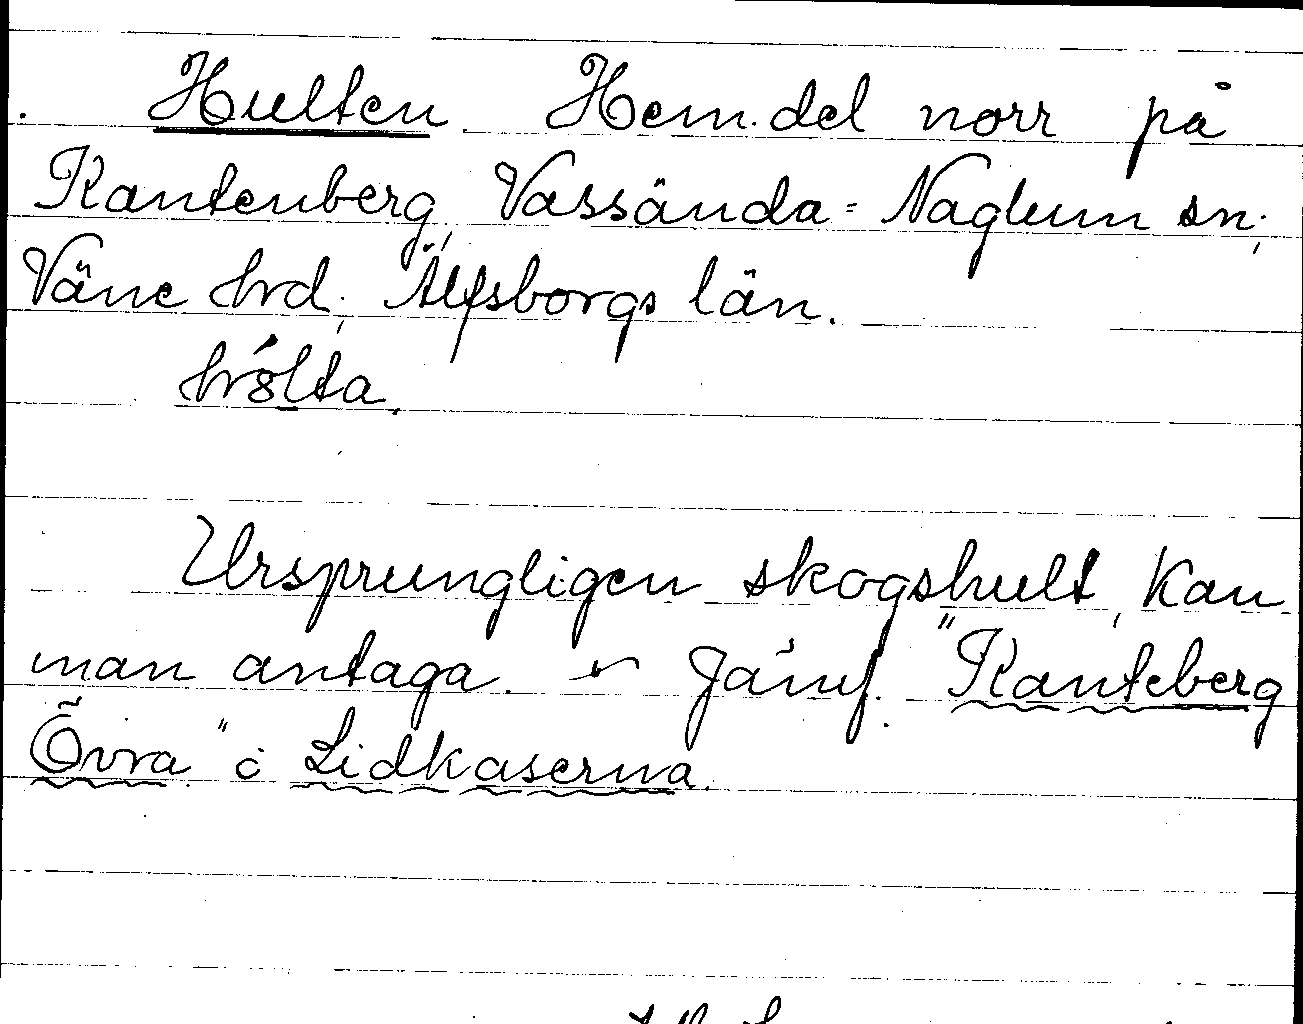 Hulten. Hem.del norr på
Rantenberg, Vassända=Naglum sn;
Väne hrd; Älfsborgs län.
hólta.
Ursprungligen skogshult, kan
man antaga. Jämf. "Ranteberg
Övra" o Lidkaserna.